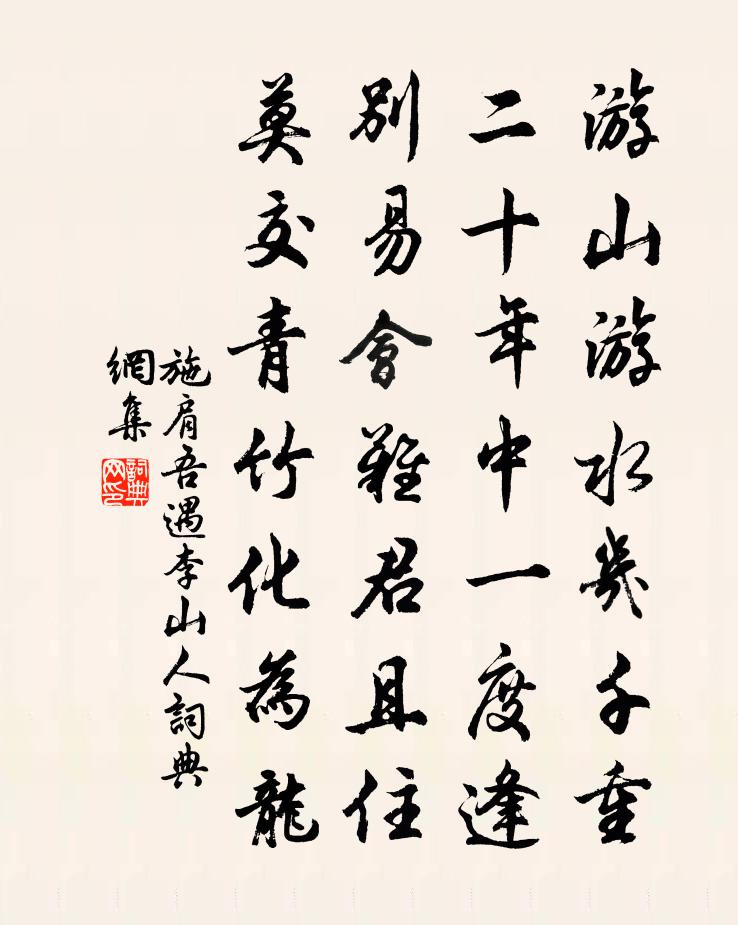 游山游水幾千重
二十年中一度逢
別易會難君且住
莫交青竹化為龍
施肩吾遇李山人詞典
網集
詞典
网印